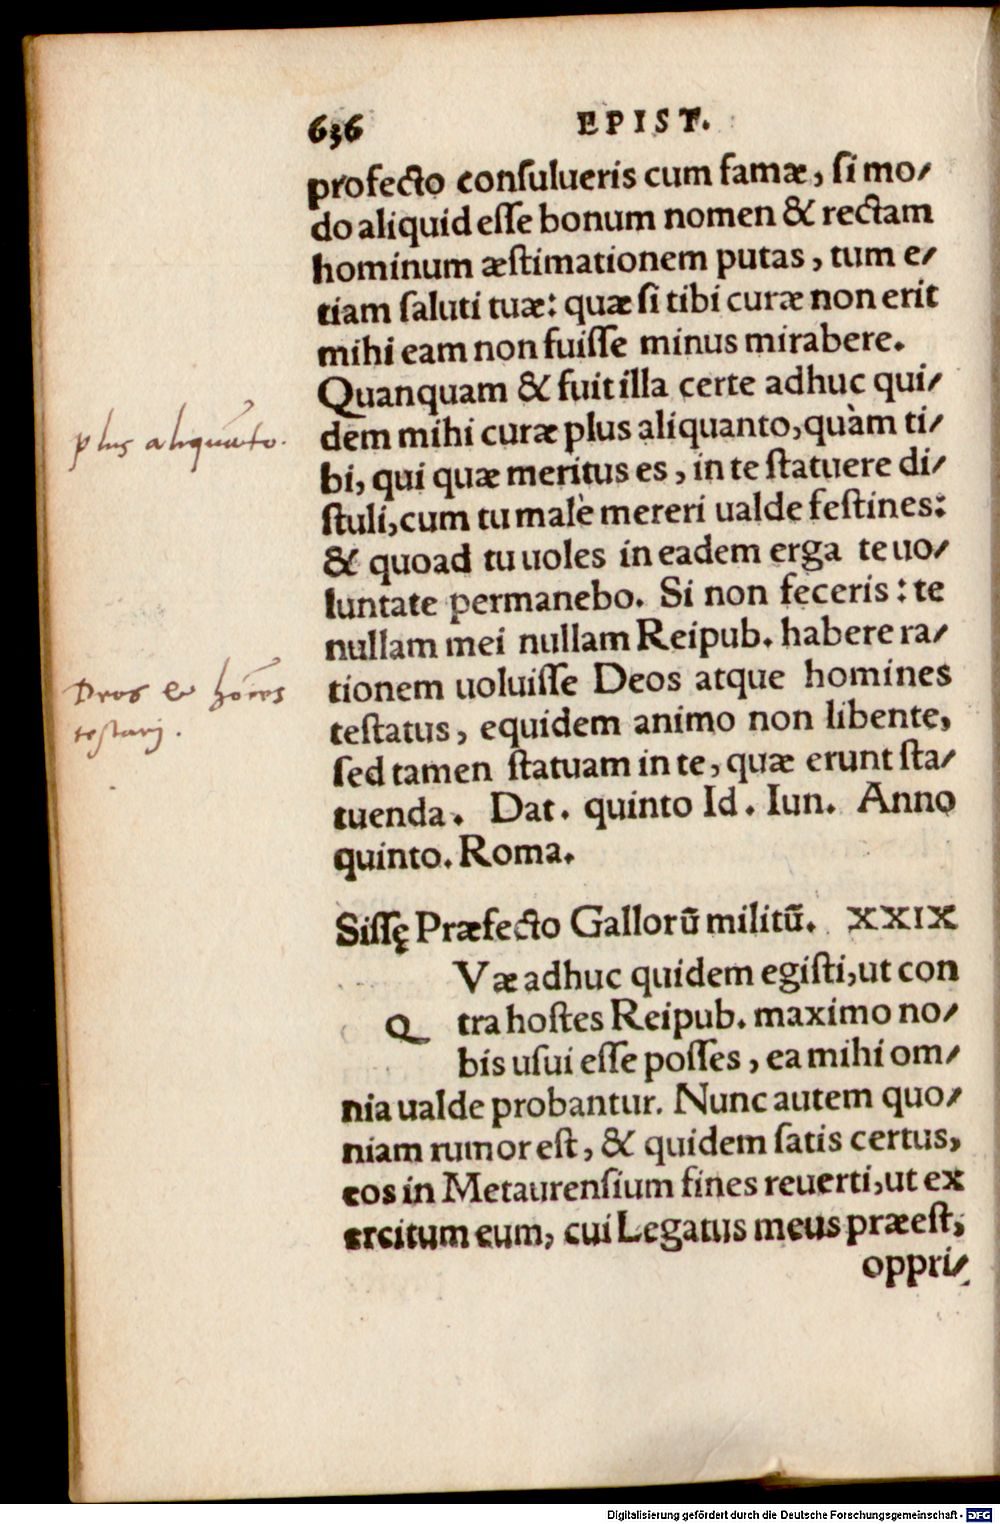 636 EPIST.
profecto consulueris cum famæ, si mo/
do aliquid esse bonum nomen & rectam
hominum æstimationem putas, tum e/
tiam saluti tuæ: quæ si tibi curæ non erit
mihi eam non fuisse minus mirabere.
Quanquam & fuit illa certe adhuc qui/
plus aliquāto.
dem mihi curæ plus aliquanto, quàm ti/
bi, qui quæ meritus es, in te statuere di/
stuli, cum tu malè mereri ualde festines:
& quoad tu uoles in eadem erga te uo/
luntate permanebo. Si non feceris: te
nullam mei nullam Reipub. habere ra/
Deos & hōīes
testarj.
tionem uoluisse Deos atque homines
testatus, equidem animo non libente,
sed tamen statuam in te, quæ erunt sta/
tuenda. Dat. quinto Id. Iun. Anno
quinto. Roma.
Sissę Præfecto Gallorū militū. XXIX
Væ adhuc quidem egisti, ut con
Q tra hostes Reipub. maximo no/
bis usui esse posses, ea mihi om/
nia ualde probantur. Nunc autem quo/
niam rumor est, & quidem satis certus,
eos in Metaurensium fines reuerti, ut ex
ercitum eum, cui Legatus meus præest,
oppri/
Digitalisierung gefördert durch die Deutsche Forschungsgemeinschaft - DFG